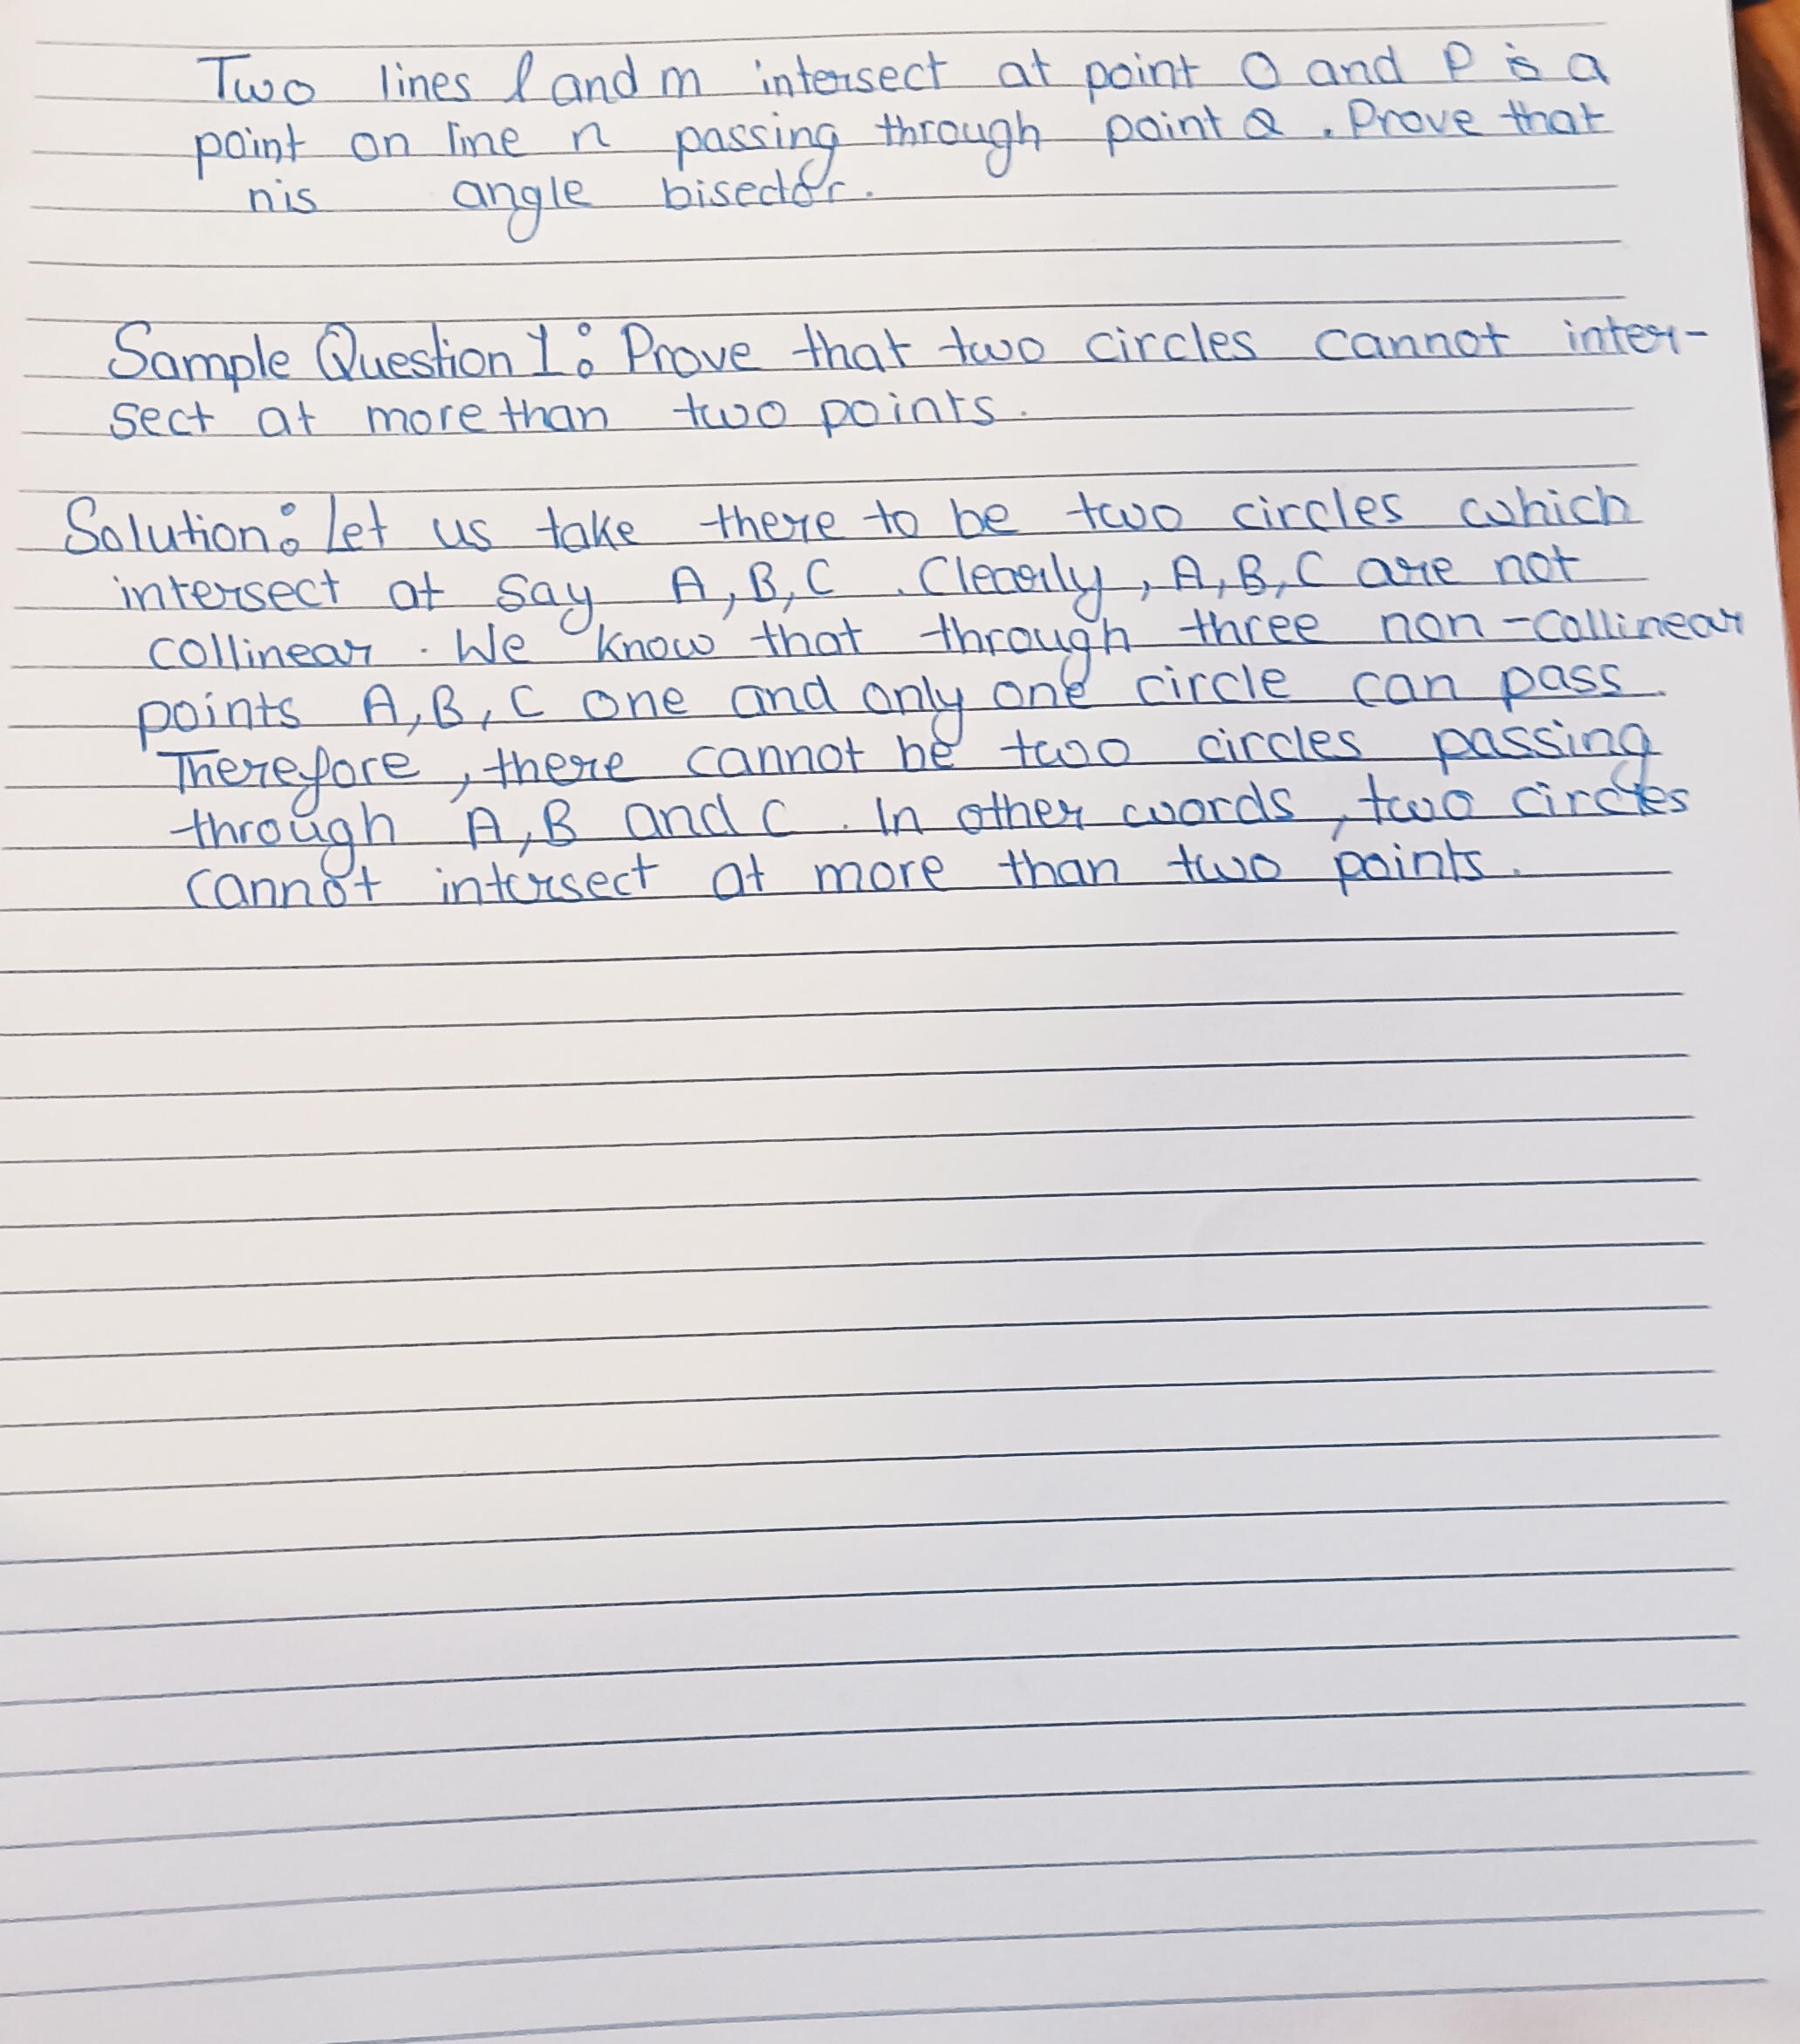 Two lines l and m intersect at point O and P is a
point on line n passing through point Q. Prove that
n is angle bisector.
Sample Question 1: Prove that two circles cannot inter-
sect at more than two points.
Solution: Let us take there to be two circles which
intersect at say A, B, C. Clearly, A, B, C are not
collinear. We know that through three non-collinear
points A, B, C one and only one circle can pass.
Therefore, there cannot be two circles passing
through A, B and C. In other words, two circles
cannot intersect at more than two points.